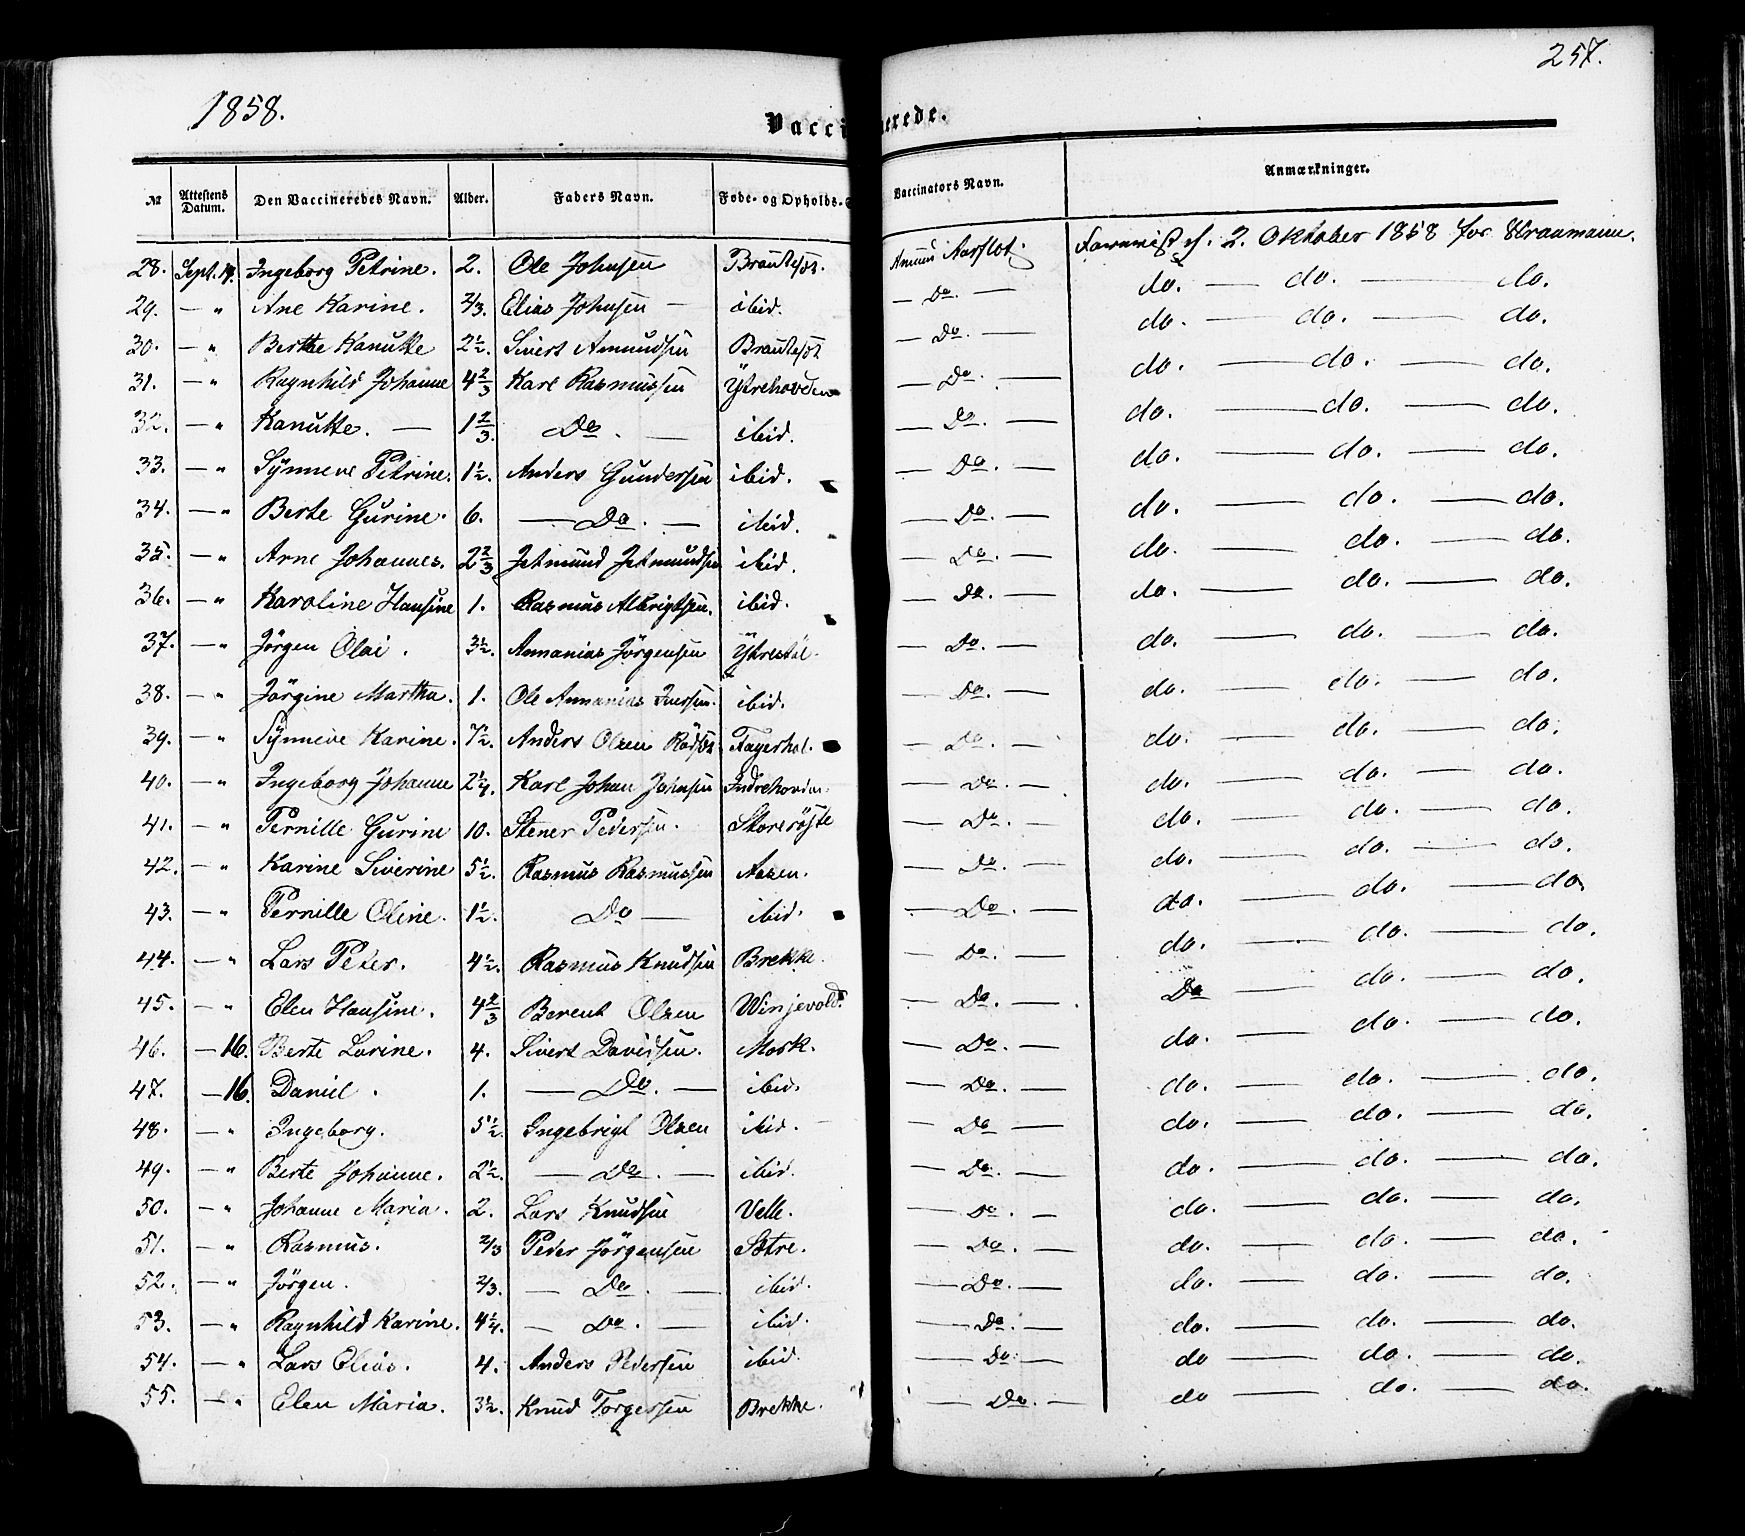 257.
1858.
Vaccinerede.
№ Attestens Datum. Den Vaccineredes Navn. Alder. Faders Navn. Føde- og Opholds- Vaccinators Navn. Anmærkninger.
28. Sept. 14. Ingeborg Petrine. 2. Ole Johnsen Aarflot. 2. Oktober 1858 for
29. — " Ane Karine. 2/3. Elias Johnsen — ibid. — Do. — do. — do. — do.
30. — " Berthe Kanutte 2 1/2. Sivert Amundsen — Do. — do. — do. — do.
31. — " Ragnhild Johanne 4 2/3 Karl Rasmussen Ytrehovden — Do. — do. — do. — do.
32. — " Kanutte. — 1 2/3. Do. — ibid. — Do. — do. — do. — do.
33. — " Synneve Petrine. 1 1/2. Anders Gundersen ibid. — Do. — do. — do. — do.
34. — " Berte Gurine. 6. — Do. — ibid. — Do. — do. — do. — do.
35. — " Arne Johannes. 2 2/3 Jetmund Jetmundsen ibid. — Do. — do. — do. — do.
36. — " Karoline Hansine 1. Rasmus Albrigtsen. ibid. — Do. — do. — do. — do.
37. — " Jörgen Olai. 3 1/2. Annanias Jörgensen Ytrestöl. — Do. — do. — do. — do.
38. — " Jörgine Martha. 1. Ole Annanias Iversen. ibid. — Do. — do. — do. — do.
39. — " Synneve Karine. 7 1/2. Anders Olsen Fagerhol. — Do. — do. — do. — do.
40. — " Ingeborg Johanne 2 1/4. Karl Johan Johnsen Indrehovden. — Do. — do. — do. — do.
41. — " Pernille Gurine 10. Stener Pedersen. Storeröjte — Do. — do. — do. — do.
42. — " Karine Siverine 5 1/2. Rasmus Rasmussen Aasen. — Do. — do. — do. — do.
43. — " Pernille Oline. 1 1/2. Do — ibid. — Do. — do. — do. — do.
44. — " Lars Peter. 4 1/2. Rasmus Knudsen Brekke. — Do. — do. — do. — do.
45. — " Elen Hansine. 4 2/3 Berent Olsen Winjevold. — Do. — Do — do. — do.
46. — 16. Berte Lovine. 4. Sivert Davidsen. Mork. — Do. — do. — do. — do.
47. — 16. Daniel. 1. — Do. — ibid. — Do. — do. — do. — do.
48. — " Ingeborg. 5 1/2. Ingebrigt Olsen ibid. — Do — do. — do. — do.
49. — " Berte Johanne. 2 1/2. — Do. — ibid. — Do. — do. — do. — do.
50. — " Johanne Maria. 2. Lars Knudsen Velle. — Do. — do. — do. — do.
51. — " Rasmus. 2/3 Peder Jörgensen Sætre. — Do. — do. — do. — do.
52. — " Jörgen. 2/3. — Do. — ibid. — Do. — do. — do. — do.
53. — " Ragnhild Karine. 4 1/4. — Do. — ibid. — Do. — do. — do. — do.
54. — " Lars Elias. 4. Anders Pedersen ibid. — Do. — do — do. — do.
55. — " Elen Maria. 3 1/2. Knud Torgersen Brekke. — Do. — do — do. — do.